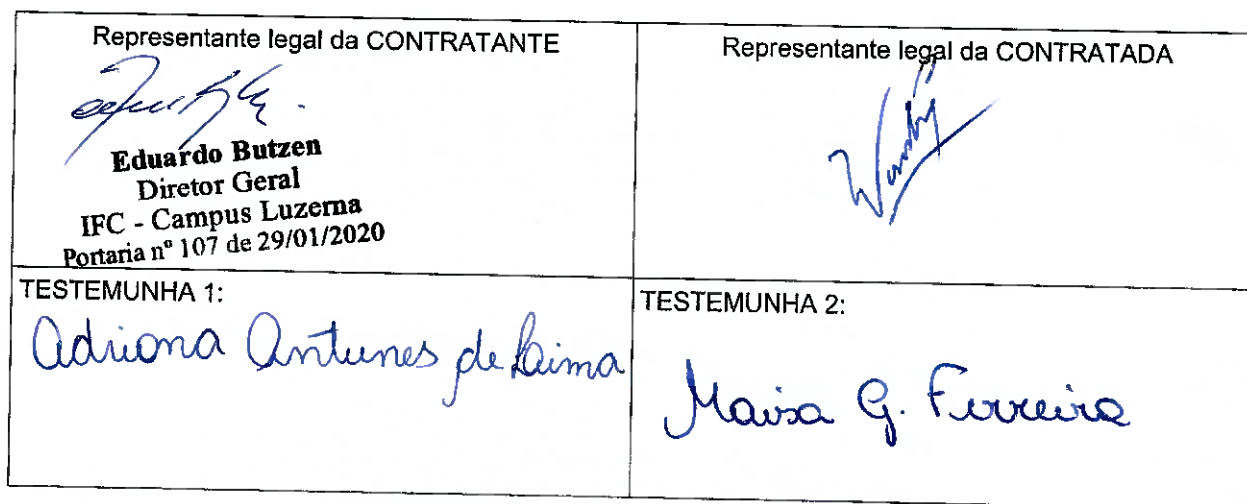 Representante legal da CONTRATANTE
Eduardo Butzen
Diretor Geral
IFC - Campus Luzerna
Portaria nº 107 de 29/01/2020
Representante legal da CONTRATADA
TESTEMUNHA 1:
Adriana Antunes de Lima
TESTEMUNHA 2:
Maisa G. Ferreira